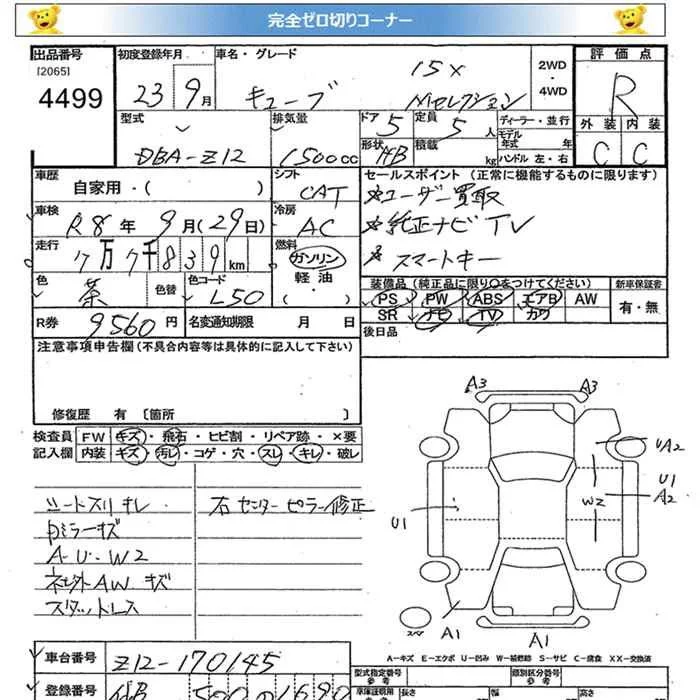 完全ゼロ切りコーナー
出品番号 初度登録年月 車名・グレード 評価点
[2065]
4499 23 9月 キューブ 15X Mセレクション 2WD・4WD R
型式 排気量 ドア 5 定員 5人 ディーラー・並行 外装 内装
DBA-Z12 1500cc 形状 HB 積載 kg モデル年式 年 C C
ハンドル 左・右
車歴 自家用・( ) シフト CAT セールスポイント (正常に機能するものに限ります)
車検 R8年 9月(29日) 冷房 AC *ユーザー買取
*純正ナビ TV
走行 7万7千839km 燃料 ガソリン 軽油 ・( ・ ) *スマートキー
色 茶 色替 色コード L50 装備品 (純正品に限り○をつけてください) 新車保証書
PS PW ABS エアB AW 有・無
R券 9560円 名変通知期限 月 日 SR ナビ TV カワ
注意事項申告欄(不具合内容等は具体的に記入して下さい) 後日品
修復歴 有 〔箇所 〕
検査員 FW キズ・飛石・ヒビ割・リペア跡・×要
記入欄 内装 キズ・汚レ・コゲ・穴・スレ・キレ・破レ
シートスリキレ 右センターピラー修正
内ミラーキズ
A・U・W2
社外AWキズ
スタットレス
A3 A3
UA2
U1 A2
W2
U1
A1 A1
A-キズ E-エクボ U-凹み W-補修跡 S-サビ C-腐食 XX-交換済
車台番号 Z12-170145
型式指定番号 類別区分番号
登録番号
長さ 幅 高さ